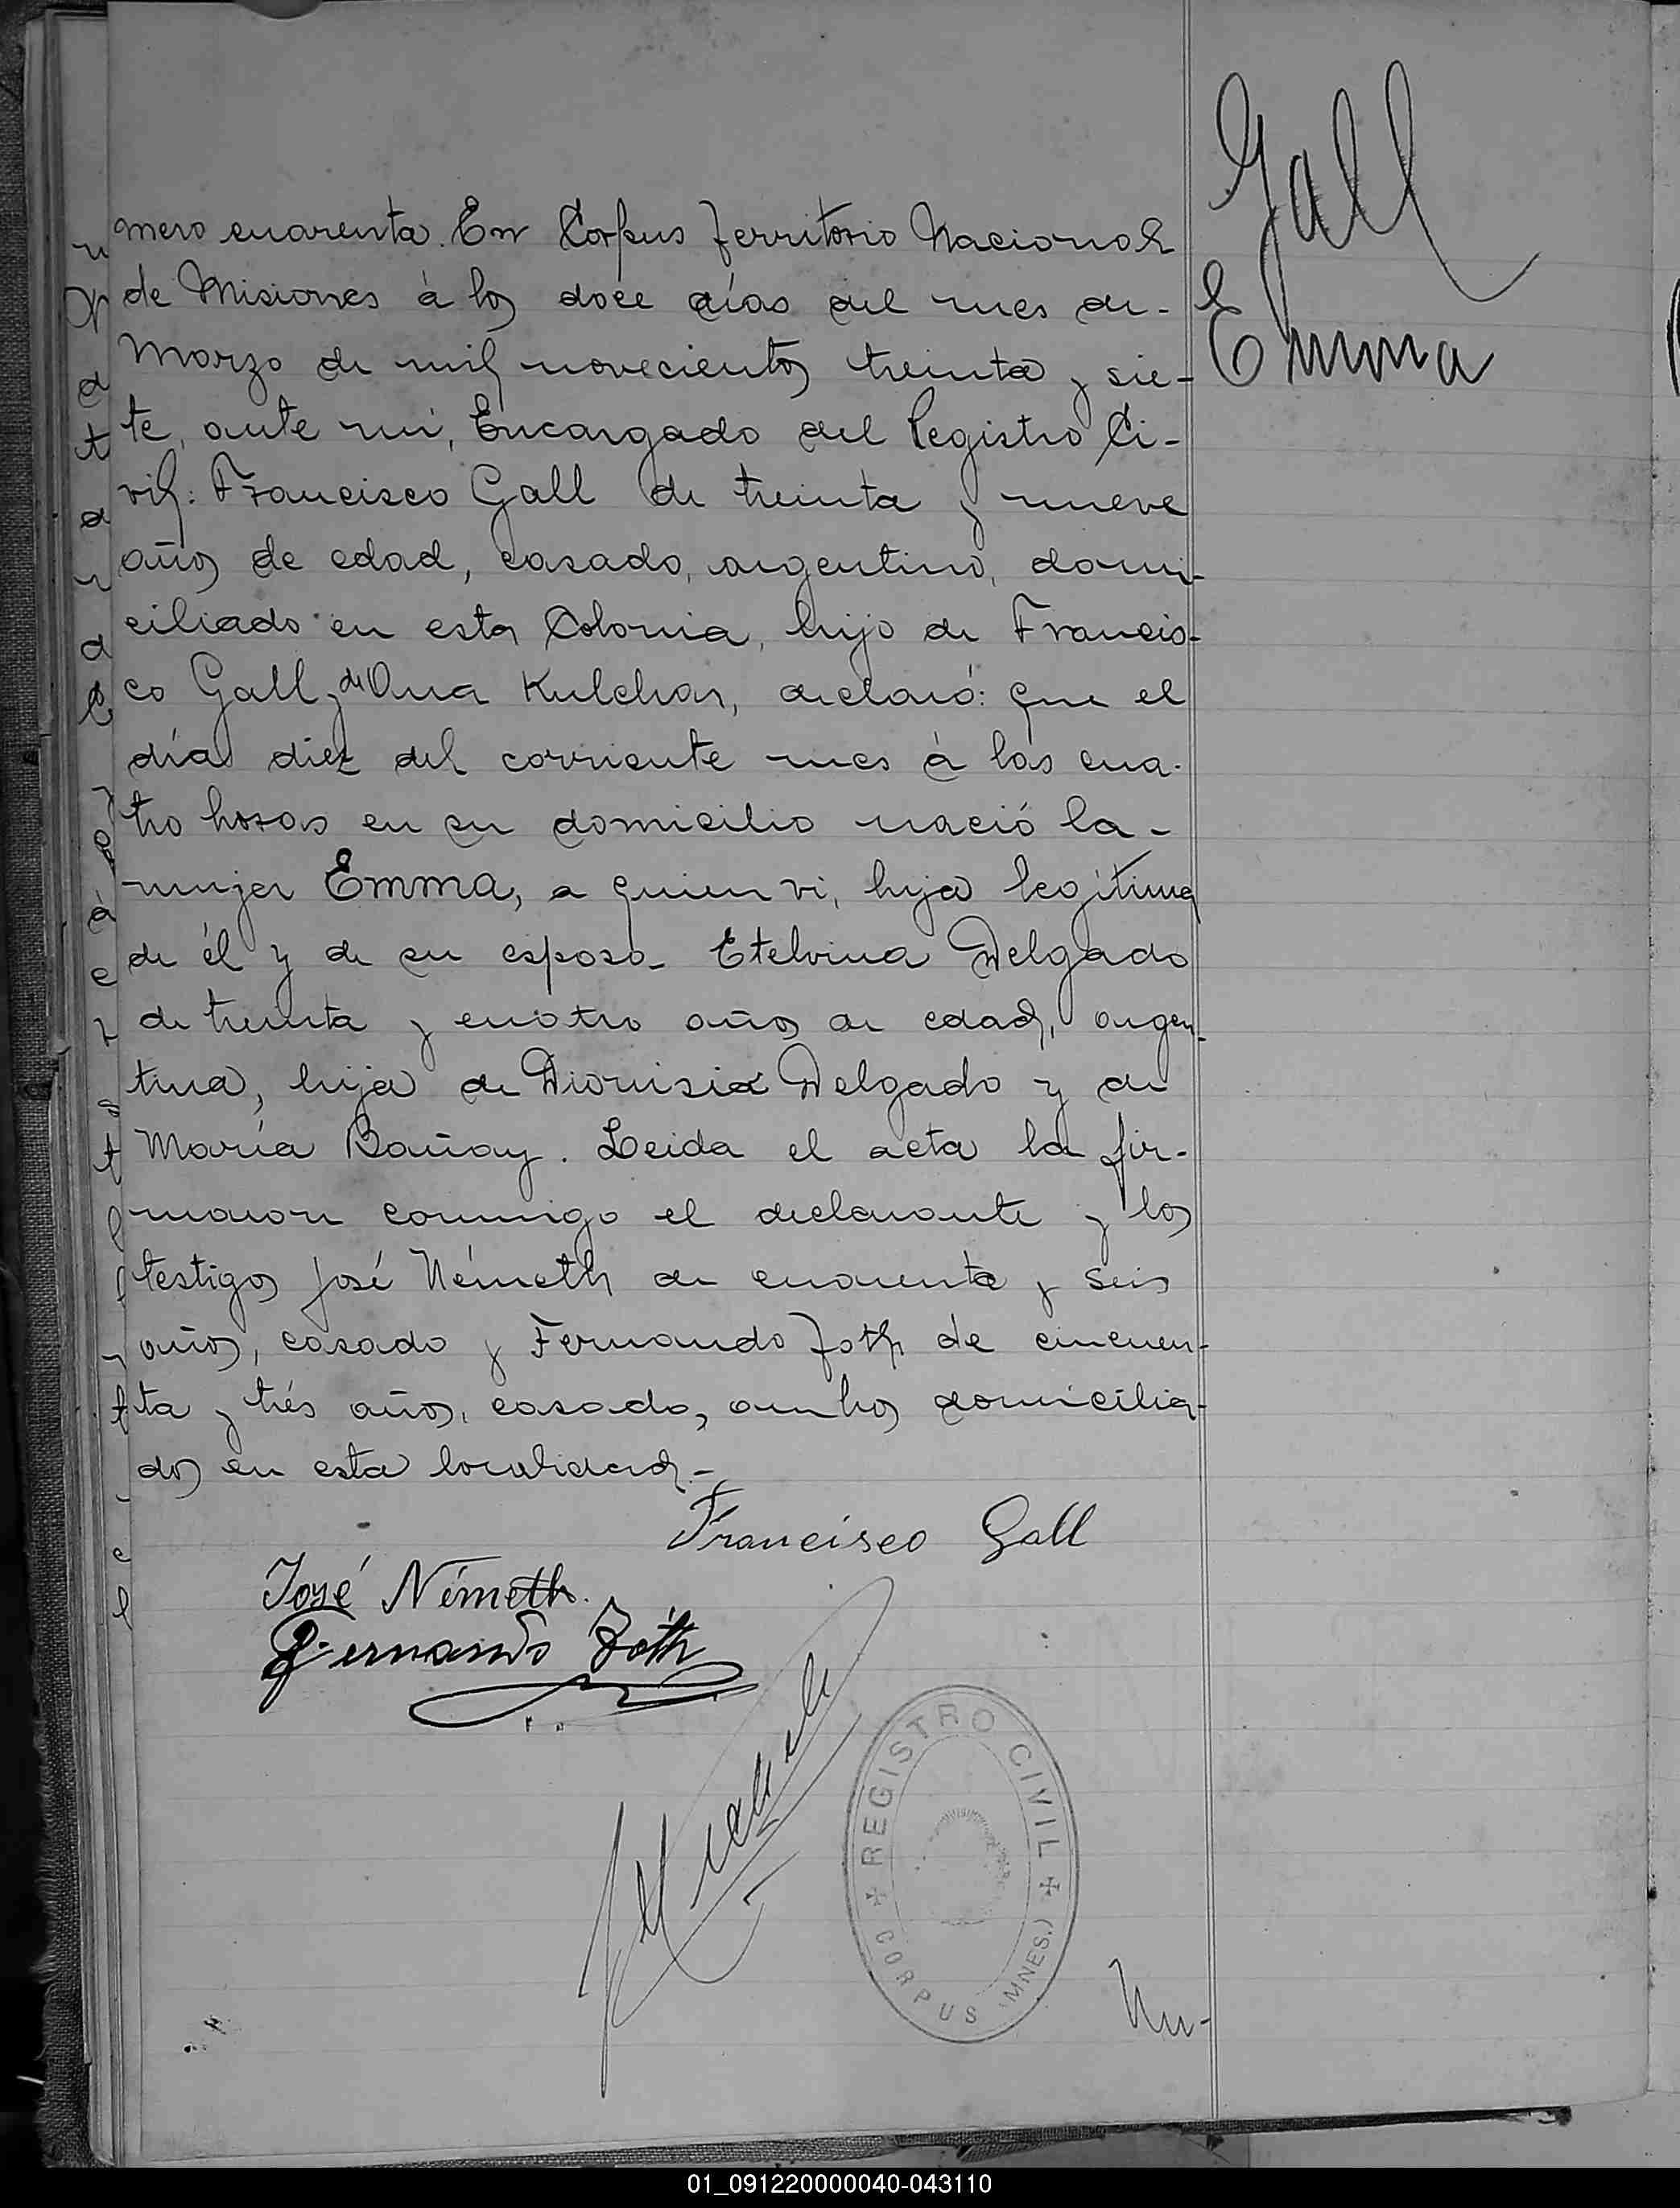 Gall
Emma
mero cuarenta. En Corpus Territorio Nacional
de Misiones á los doce días del mes de-
Marzo de mil novecientos treinta y sie-
te, ante mi, Encargado del Registro Ci-
vil: Francisco Gall de treinta y nueve
años de edad, casado, argentino, domi-
ciliado en esta Colonia, hijo de Francis-
co Gall y de Ana Kulchar, declaró: que el
día diez del corriente mes á las cua-
tro horas en su domicilio nació la-
mujer Emma, a quien vi, hija legítima
de él y de su esposa- Etelvina Delgado
de treinta y cuatro años de edad, argen-
tina, hija de Dionisia Delgado y de
María Bañay. Leida el acta la fir-
maron conmigo el declarante y los
testigos José Németh de cuarenta y seis
años, casado y Fernando Toth de cincuen-
ta y trés años, casado, ambos domicilia-
dos en esta localidad.-
Francisco Gall
José Németh.
Fernando Toth
REGISTRO CIVIL
CORPUS (MNES.)
Nu-
01_091220000040-043110